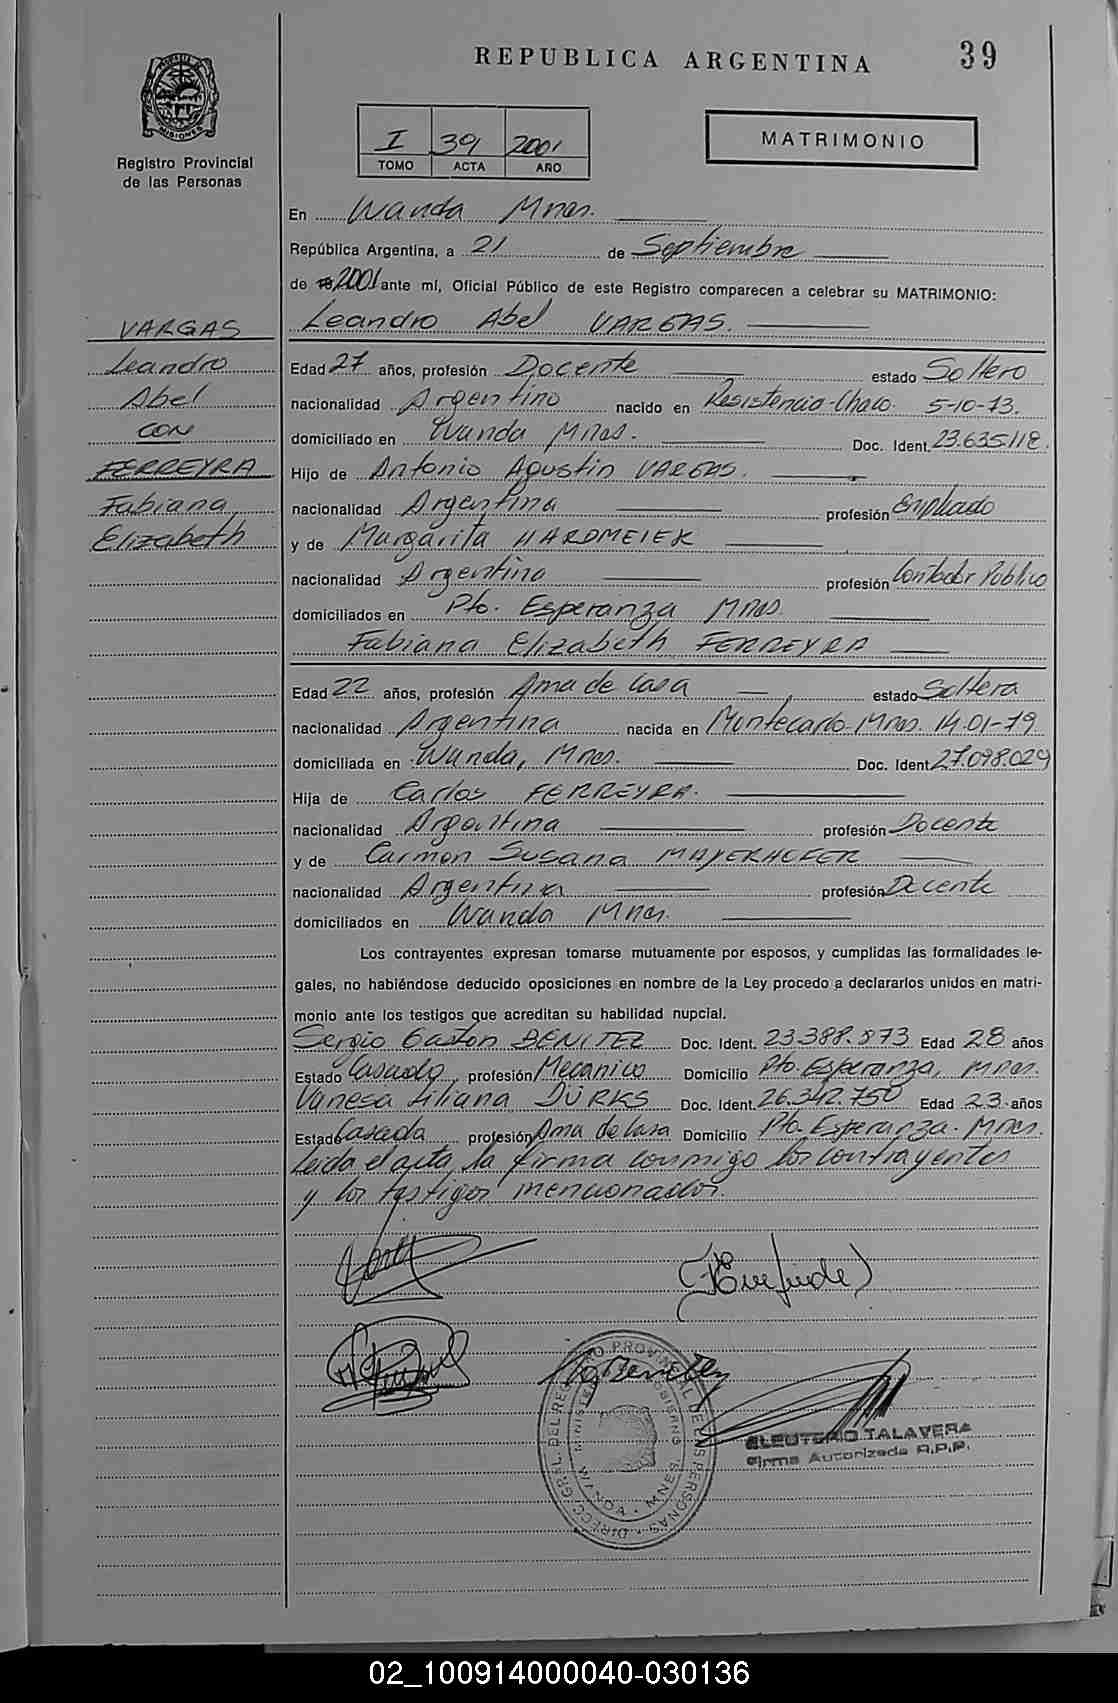 REPUBLICA ARGENTINA 39
MISIONES
Registro Provincial
de las Personas
I 39 2001
TOMO ACTA AÑO
MATRIMONIO
En Wanda Mnes.
República Argentina, a 21 de Septiembre
de 2001 ante mí, Oficial Público de este Registro comparecen a celebrar su MATRIMONIO:
Leandro Abel VARGAS.
VARGAS
Leandro
Abel
CON
FERREYRA
Fabiana
Elizabeth
Edad 27 años, profesión Docente estado Soltero
nacionalidad Argentino nacido en Resistencia-Chaco. 5-10-73.
domiciliado en Wanda Mnes. Doc. Ident. 23.635.118.
Hijo de Antonio Agustin VARGAS.
nacionalidad Argentina profesión Empleado
y de Margarita HARDMEIEK
nacionalidad Argentina profesión Contador Publico
domiciliados en Pto. Esperanza Mnes.
Fabiana Elizabeth FERREYRA
Edad 22 años, profesión Ama de casa estado Soltera
nacionalidad Argentina nacida en Montecarlo-Mnes. 14-01-79
domiciliada en Wanda, Mnes. Doc. Ident. 27.098.029
Hija de Carlos FERREYRA.
nacionalidad Argentina profesión Docente
y de Carmen Susana MAYERHOFER
nacionalidad Argentina profesión Docente
domiciliados en Wanda Mnes.
Los contrayentes expresan tomarse mutuamente por esposos, y cumplidas las formalidades le-
gales, no habiéndose deducido oposiciones en nombre de la Ley procedo a declararlos unidos en matri-
monio ante los testigos que acreditan su habilidad nupcial.
Sergio Gastón BENITEZ Doc. Ident. 23.388.873 Edad 28 años
Estado Casado profesión Mecanico Domicilio Pto. Esperanza, Mnes.
Vanesa Liliana DÜRKS Doc. Ident. 26.342.750 Edad 23 años
Estado Casada profesión Ama de casa Domicilio Pto. Esperanza. Mnes.
Leida el acta, la firma conmigo los contrayentes
y los testigos mencionados.
DIRECC. GRAL. DEL REGISTRO PROVINCIAL DE LAS PERSONAS
MINISTERIO GOBIERNO
WANDA - MNES
ELEUTERIO TALAVERA
Firma Autorizada R.P.P.
02_100914000040-030136